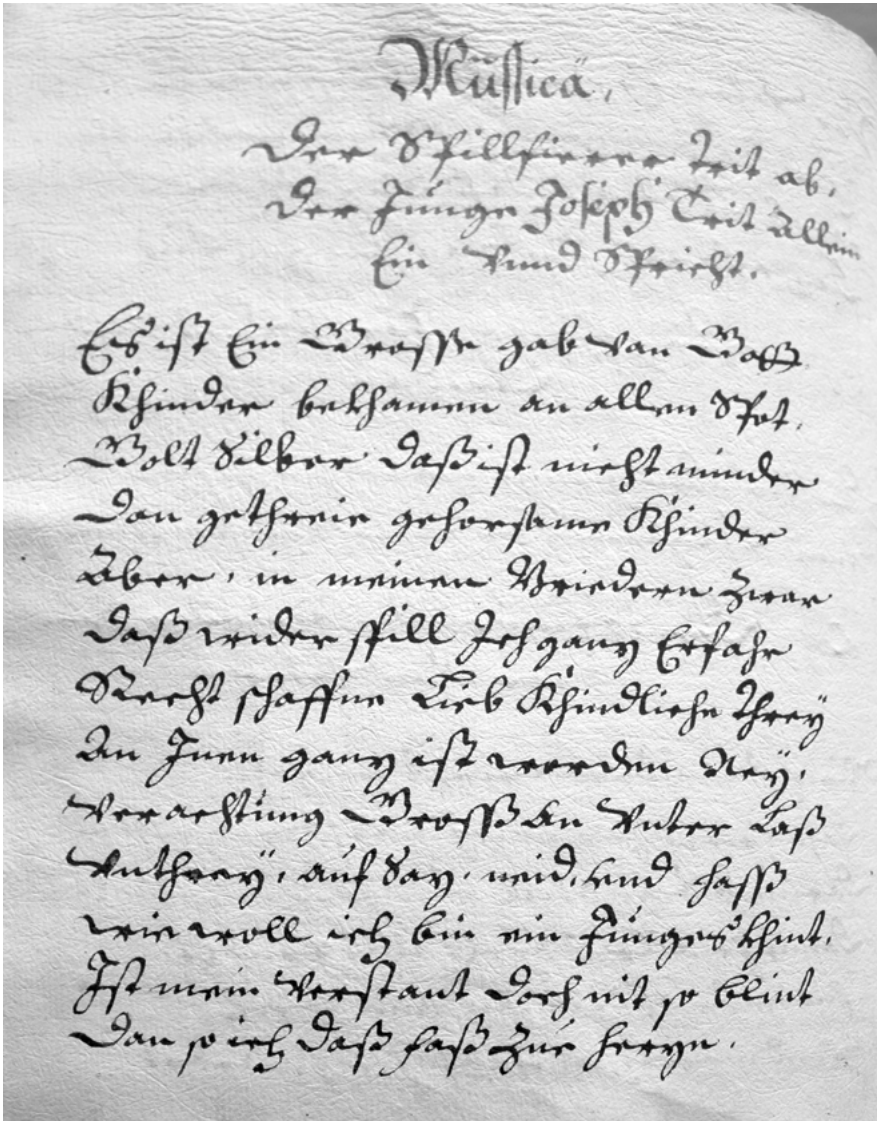 Mŭssica.
Der Spillfierer Trit ab.
Der Junge Joseph Trit Allein
Ein Vnnd Spricht.
Es ist Ein Grosse gab Van Gott
Khinder bekhamen an allen Spot.
Golt Silber daß ist nicht minder
Dan gethreie gehorsame Khinder
Aber. in meinen Briedern zwar
Daß wider spill Jch ganz Erfahr
Recht schaffne Lieb Khindliche threy
An Jnen ganz ist worden Ney.
Verachtŭng Gross an Vnter Laß
Vnthrey. auf Saz. neid. vnd hass
wie woll ich bin ein Jŭnges khint.
Jst mein Verstant doch nit so blint
Dan so ich daß faß zŭe herzn.